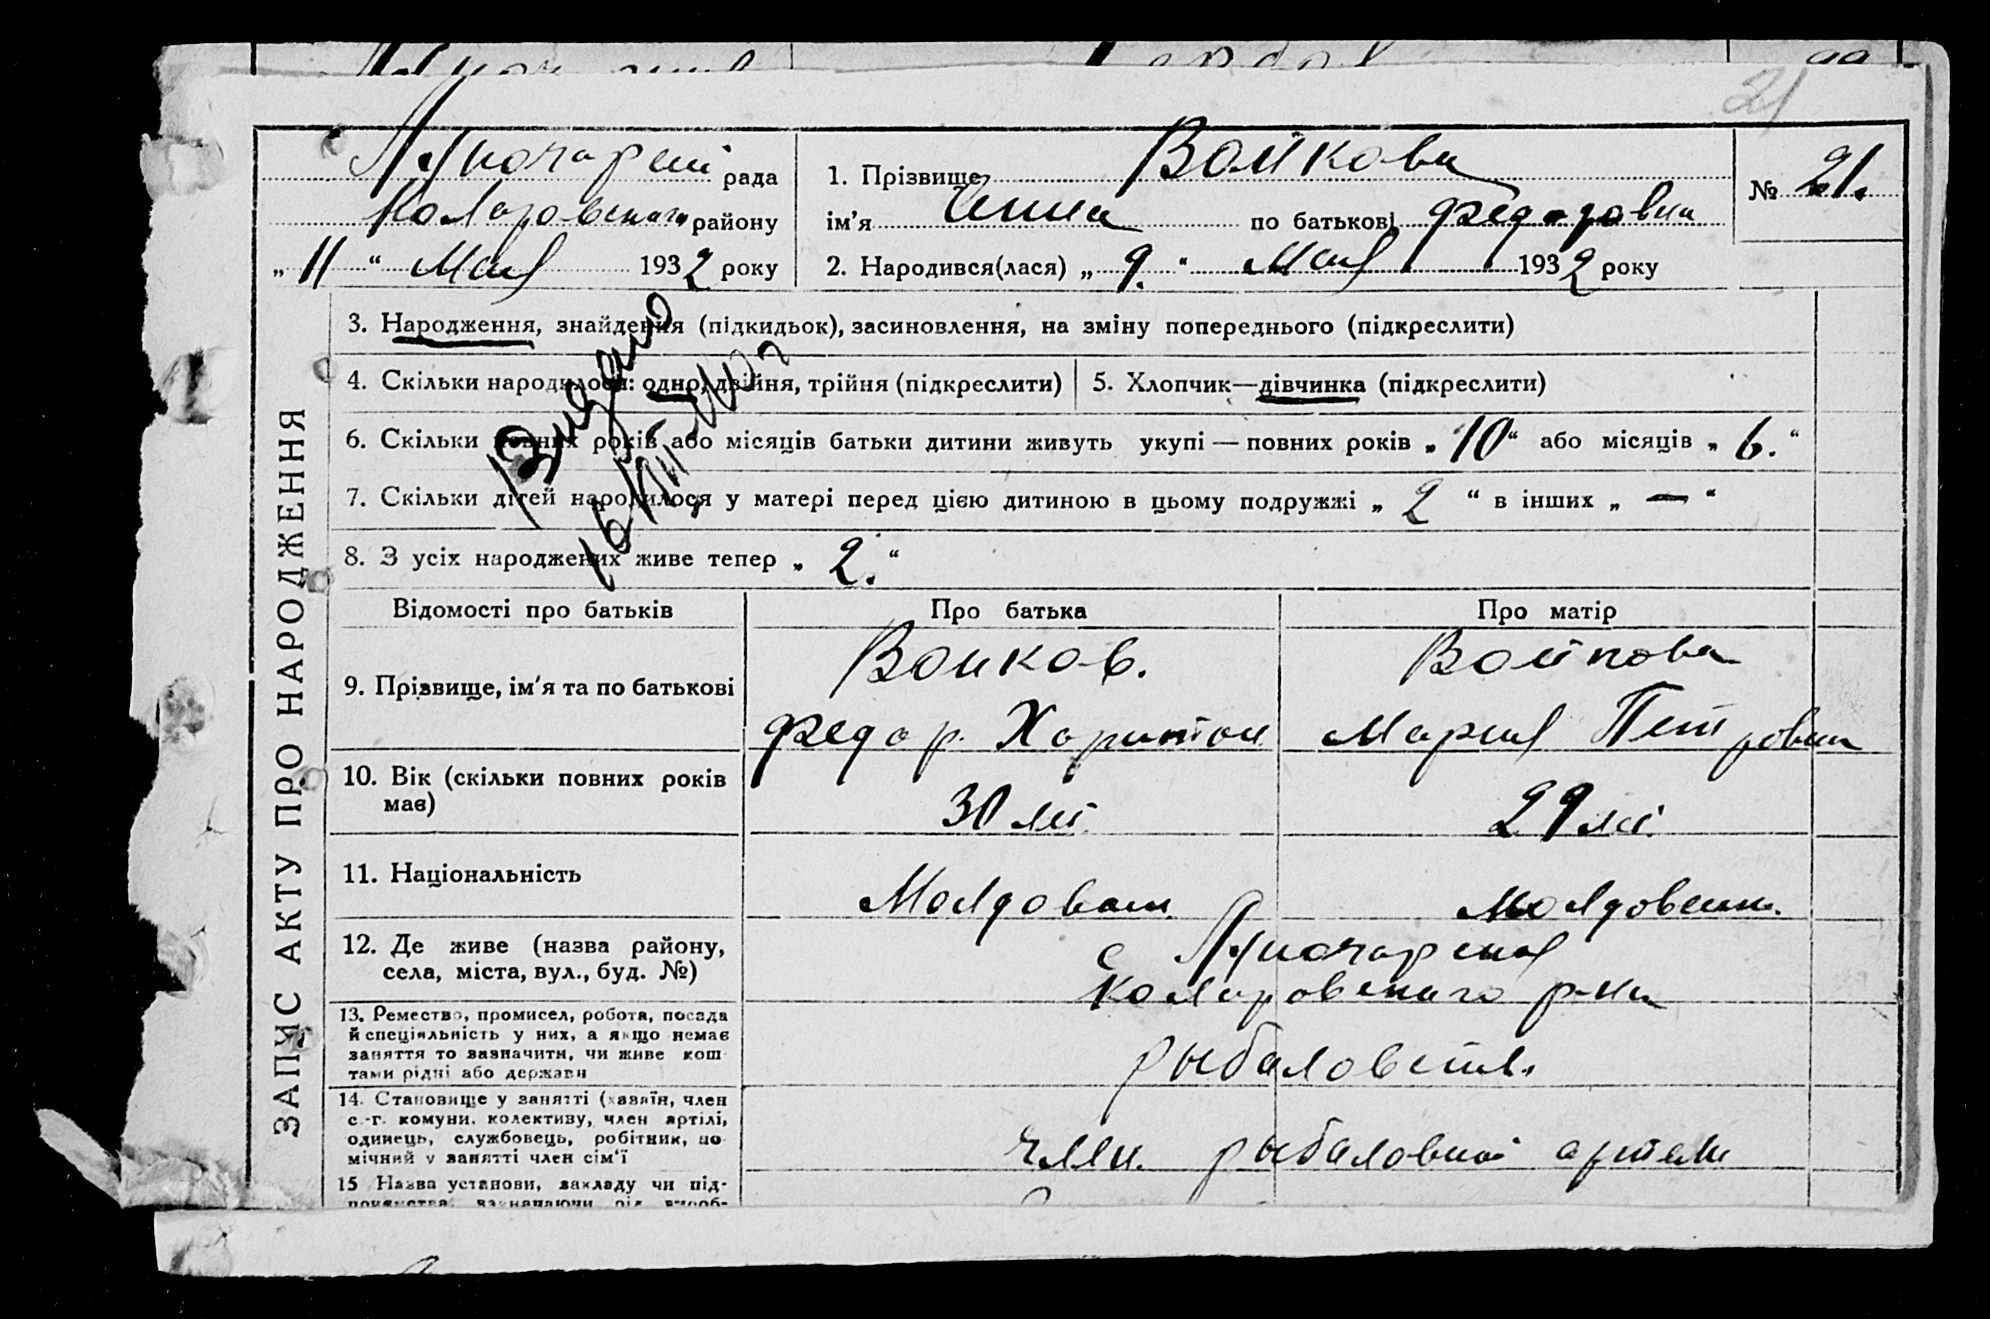 21
Луначарск рада
Коларовского району
„ 11 “ Мая 1932 року
1. Прізвище Войкова
ім'я Инна по батькові Федоровна
№ 21.
2. Народився(лася) „ 9. “ Мая 1932 року
ЗАПИС АКТУ ПРО НАРОДЖЕННЯ
3. Народження, знайдення (підкидьок), засиновлення, на зміну попереднього (підкреслити)
4. Скільки народилося: одно, двійня, трійня (підкреслити)
5. Хлопчик—дівчинка (підкреслити)
6. Скільки повних років або місяців батьки дитини живуть укупі — повних років „ 10 “ або місяців „ 6. “
7. Скільки дітей народилося у матері перед цією дитиною в цьому подружжі „ 2 “ в інших „ — “
8. З усіх народжених живе тепер „ 2. “
Видано
Відомості про батьків
Про батька
Про матір
9. Прізвище, ім'я та по батькові
Войков.
Федор. Харитон
Войкова
Мария Петровна
10. Вік (скільки повних років
має)
30 лет
29 лет
11. Національність
Молдован
Молдован.
12. Де живе (назва району,
села, міста, вул., буд. №)
с Луначарск
Коларовского р-на
13. Ремество, промисел, робота, посада
й спеціяльність у них, а якщо немає
заняття то зазначити, чи живе кош
тами рідні або держави
рыбаловств.
14. Становище у занятті (хазяїн, член
с.-г. комуни, колективу, член артілі,
одинець, службовець, робітник, по
мічний у занятті член сім'ї
член. рыбаловной артели
15 Назва установи, закладу чи під-
приємства, зазначаючи рід вироб-